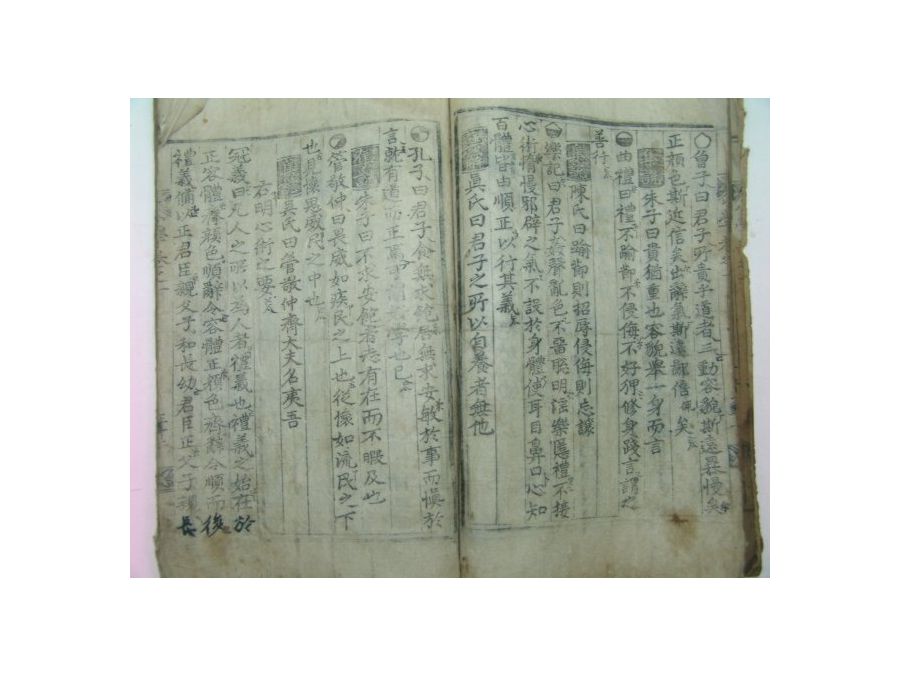 曾子曰君子所貴乎道者三動容貌斯遠暴慢矣
正顔色斯近信矣出辭氣斯遠鄙倍矣
朱子曰貴猶重也容貌擧一身而言
曲禮曰禮不踰節不侵侮不好狎修身踐言謂之
善行
陳氏曰踰節則招辱侵侮則忘讓
樂記曰君子姦聲亂色不留聡明淫樂慝禮不接
心術惰慢邪辟之氣不設於身體使耳目鼻口心知
百體皆由順正以行其義
眞氏曰君子之所以自養者無他
孔子曰君子食無求飽居無求安敏於事而愼於
言就有道而正焉可謂 學也已
朱子曰不求安飽者志有在而不暇及也
管敬仲曰畏威如疾民之上也從懷如流民之下
也見懷思威民之中也
吳氏曰管敬仲齊大夫名夷吾
右明心術之要
冠義曰凡人之所以為人者禮義也禮義之始在於
正容體齊顔色順辭令容體正顔色齊辭令順而後
禮義備以正君臣親父子和長幼君臣正父子親長